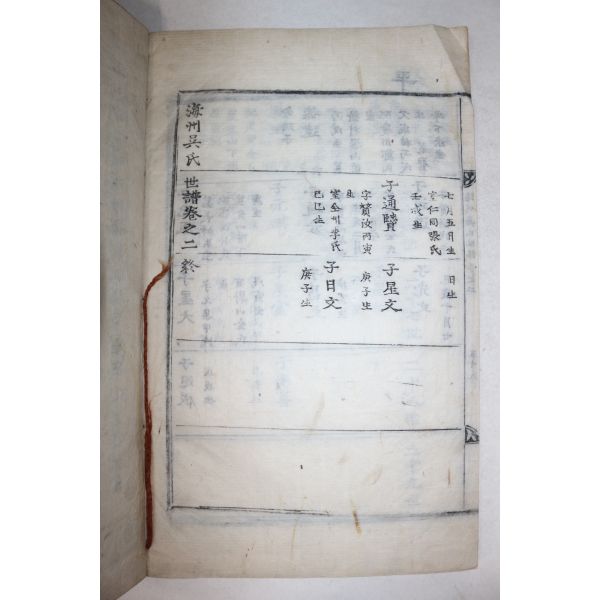 七月五日生
室仁同張氏
壬戌生
子通賢
字贊汝丙寅
生
室全州李氏
己巳生
日生
子星文
庚子生
子日文
庚子生
海州吳氏世譜卷之二終